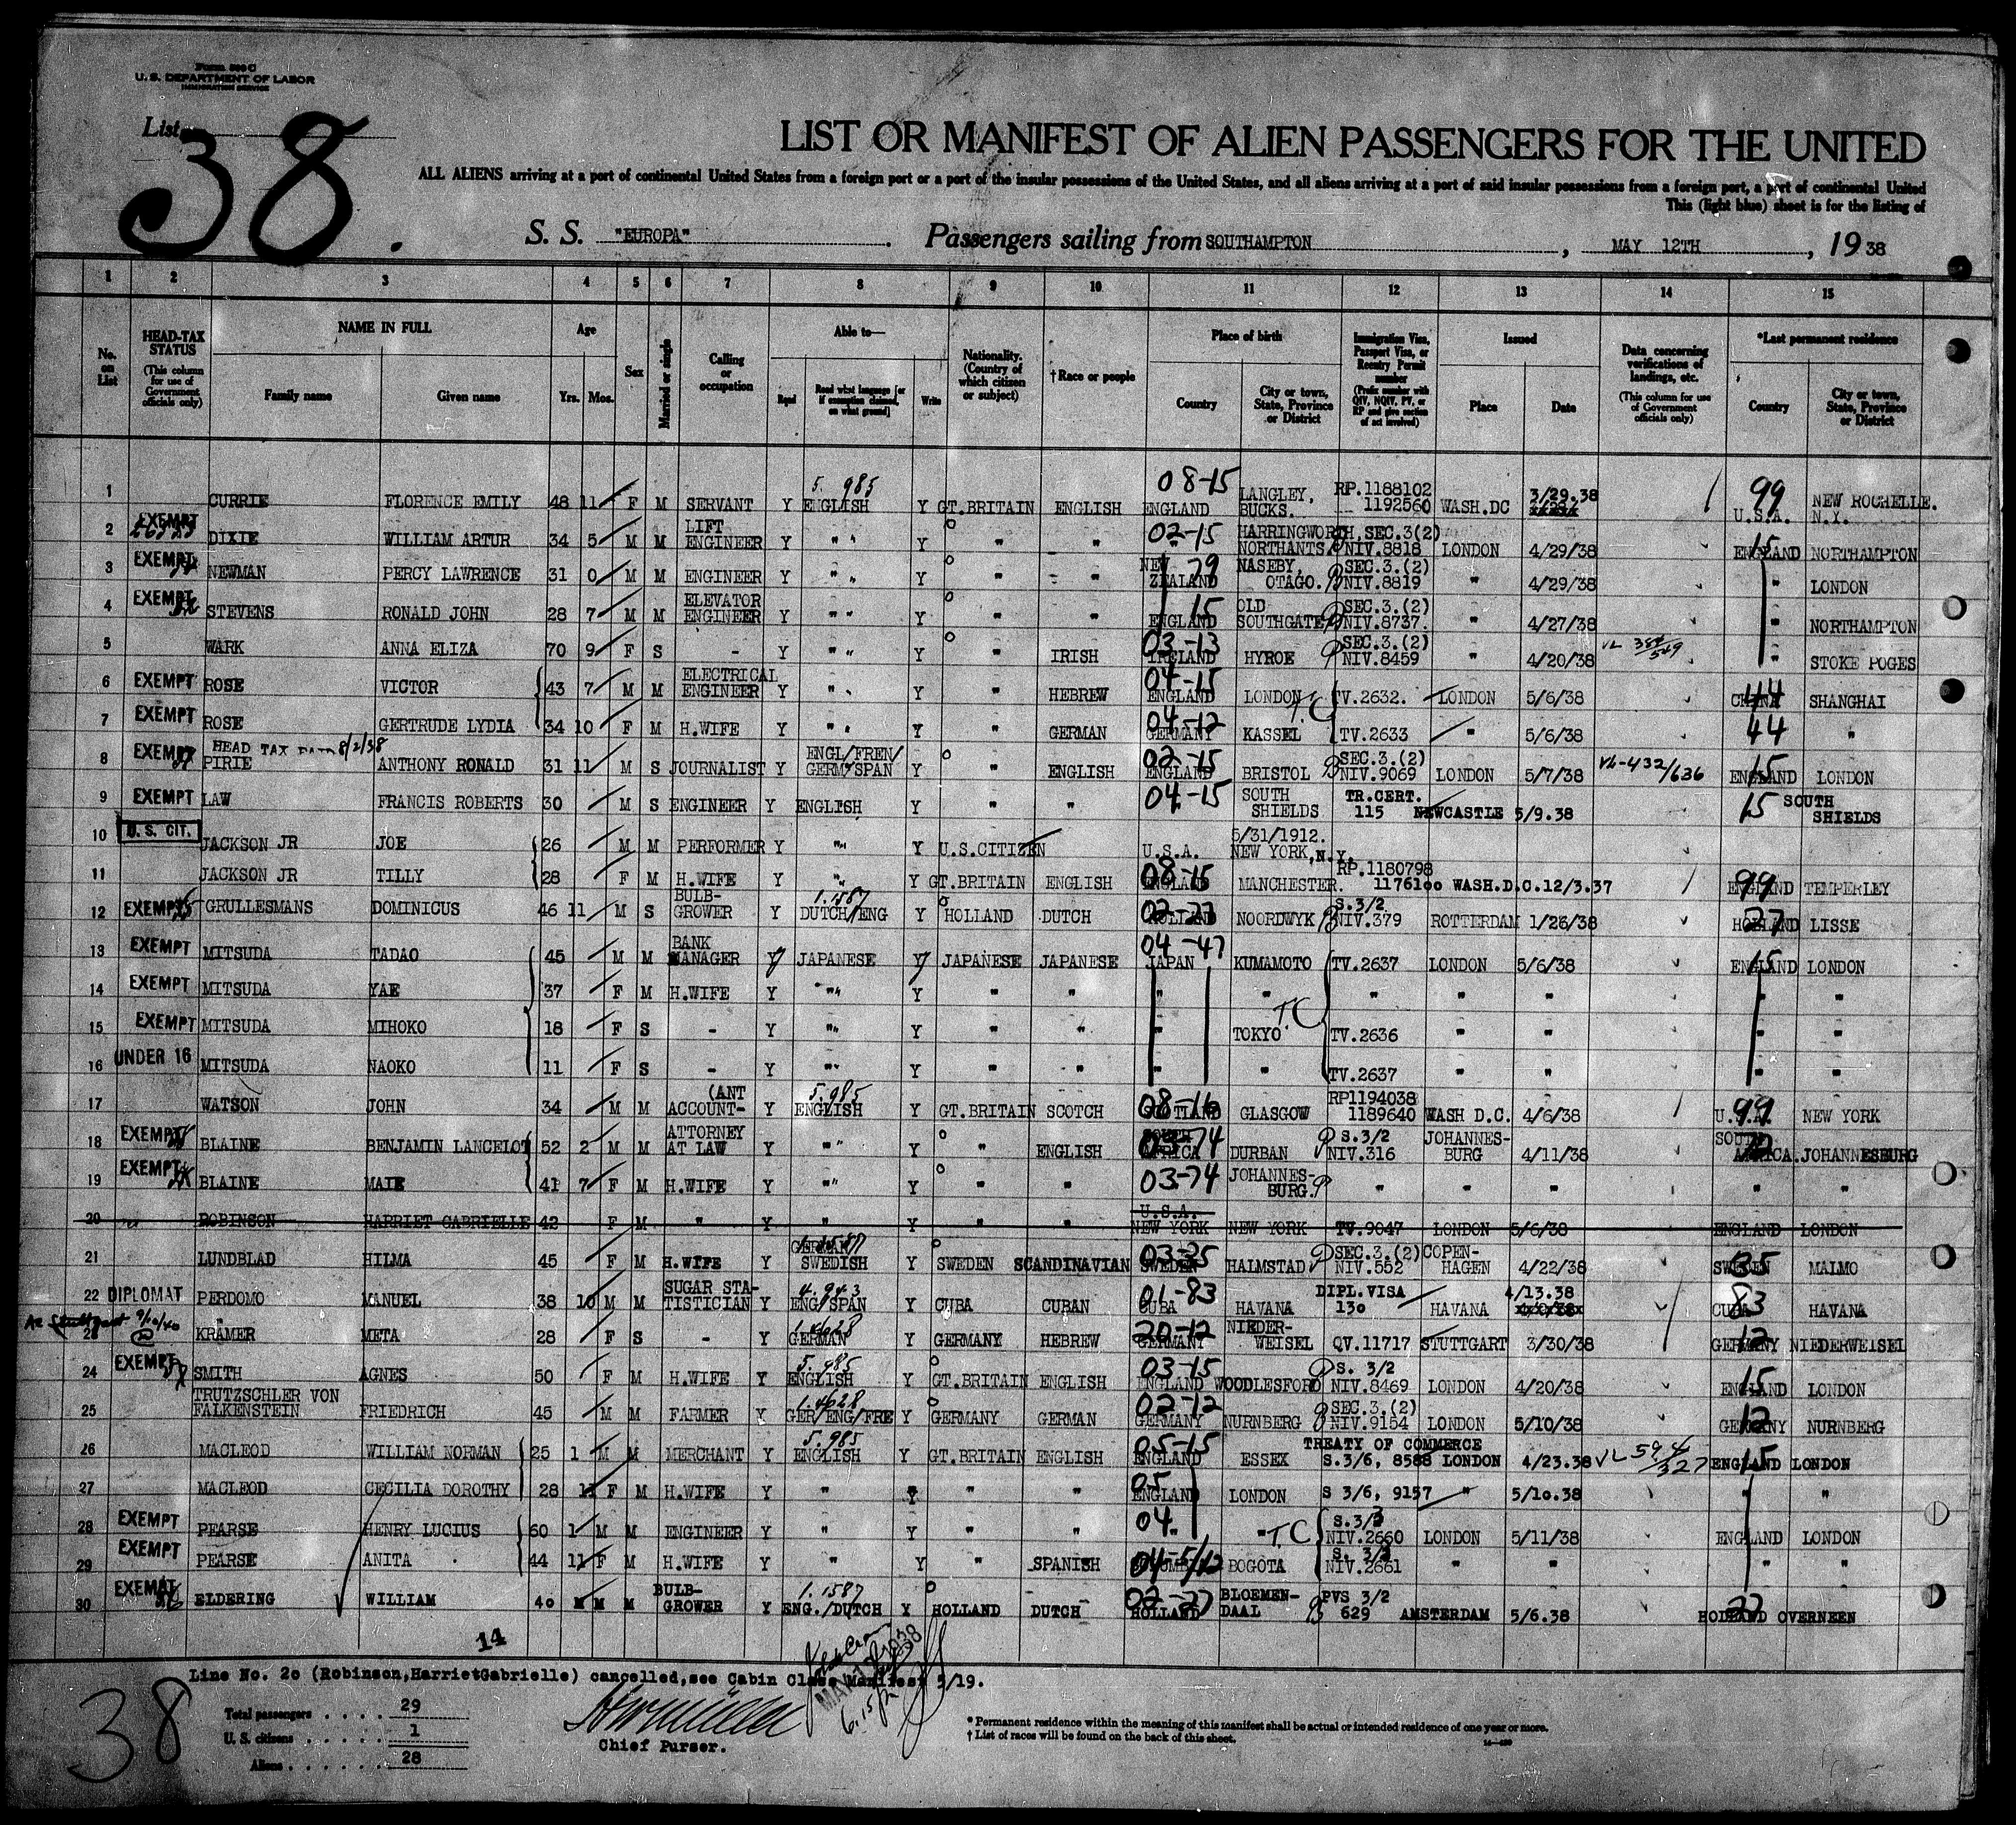 Form 500 C
U. S. DEPARTMENT OF LABOR
IMMIGRATION SERVICE
List 38.
LIST OR MANIFEST OF ALIEN PASSENGERS FOR THE UNITED
ALL ALIENS arriving at a port of continental United States from a foreign port or a port of the insular possessions of the United States, and all aliens arriving at a port of said insular possessions from a foreign port, a port of continental United
This (light blue) sheet is for the listing of
S. S. "EUROPA" Passengers sailing from SOUTHAMPTON, MAY 12TH, 1938
1 2 3 4 5 6 7 8 9 10 11 12 13 14 15
No. on List
HEAD-TAX STATUS (This column for use of Government officials only)
NAME IN FULL Family name Given name
Age Yrs. Mos.
Sex
Married or single
Calling or occupation
Able to— Read Read what language [or if exemption claimed, on what ground] Write
Nationality. (Country of which citizen or subject)
† Race or people
Place of birth Country City or town, State, Province or District
Immigration Visa, Passport Visa, or Reentry Permit number (Prefix number with QIV, NQIV, PV, or RP and give section of act involved)
Issued Place Date
Data concerning verifications of landings, etc. (This column for use of Government officials only)
*Last permanent residence Country City or town, State, Province or District
1 CURRIE FLORENCE EMILY 48 11 F M SERVANT Y 5. 985 ENGLISH Y GT.BRITAIN ENGLISH 08-15 ENGLAND LANGLEY, BUCKS. RP.1188102 1192560 WASH.DC 3/29.38 99 U.S.A. NEW ROCHELLE. N.Y.
2 EXEMPT DIXIE WILLIAM ARTUR 34 5 M M LIFT ENGINEER Y " " Y " " 02-15 HARRINGWORTH, NORTHANTS SEC.3(2) NIV.8818 LONDON 4/29/38 15 ENGLAND NORTHAMPTON
3 EXEMPT NEWMAN PERCY LAWRENCE 31 0 M M ENGINEER Y " " Y " " NEW ZEALAND 79 NASEBY, OTAGO. SEC.3.(2) NIV.8819 " 4/29/38 " LONDON
4 EXEMPT STEVENS RONALD JOHN 28 7 M M ELEVATOR ENGINEER Y " " Y " " 15 ENGLAND OLD SOUTHGATE SEC.3.(2) NIV.8737. " 4/27/38 " NORTHAMPTON
5 WARK ANNA ELIZA 70 9 F S - Y " " Y " IRISH 03-13 IRELAND HYROE SEC.3.(2) NIV.8459 " 4/20/38 " STOKE POGES
6 EXEMPT ROSE VICTOR 43 7 M M ELECTRICAL ENGINEER Y " " Y " HEBREW 04-15 ENGLAND LONDON T.C TV.2632. LONDON 5/6/38 44 CHINA SHANGHAI
7 EXEMPT ROSE GERTRUDE LYDIA 34 10 F M H.WIFE Y " " Y " GERMAN 04-12 GERMANY KASSEL TV.2633 " 5/6/38 44 "
8 EXEMPT HEAD TAX 8/2/38 PIRIE ANTHONY RONALD 31 11 M S JOURNALIST Y ENGL/FREN/ GERM/SPAN Y " ENGLISH 02-15 ENGLAND BRISTOL SEC.3.(2) NIV.9069 LONDON 5/7/38 VL-432/636 15 ENGLAND LONDON
9 EXEMPT LAW FRANCIS ROBERTS 30 M S ENGINEER Y ENGLISH Y " " 04-15 SOUTH SHIELDS TR.CERT. 115 NEWCASTLE 5/9.38 15 SOUTH SHIELDS
10 U.S. CIT. JACKSON JR JOE 26 M M PERFORMER Y " " Y U.S.CITIZEN U.S.A. 5/31/1912. NEW YORK,N.Y.
11 JACKSON JR TILLY 28 F M H.WIFE Y " " Y GT.BRITAIN ENGLISH 08-15 ENGLAND MANCHESTER. RP.1180798 1176100 WASH.D.C.12/3.37 99 ENGLAND TEMPERLEY
12 EXEMPT GRULLESMANS DOMINICUS 46 11 M S BULB-GROWER Y 1.1587 DUTCH/ENG Y HOLLAND DUTCH 02-27 HOLLAND NOORDWYK S.3/2 NIV.379 ROTTERDAM 1/26/38 27 HOLLAND LISSE
13 EXEMPT MITSUDA TADAO 45 M M BANK MANAGER Y JAPANESE Y JAPANESE JAPANESE 04-47 JAPAN KUMAMOTO TV.2637 LONDON 5/6/38 15 ENGLAND LONDON
14 EXEMPT MITSUDA YAE 37 F M H.WIFE Y " " Y " " " " " " " " "
15 EXEMPT MITSUDA MIHOKO 18 F S - Y " " Y " " " TOKYO TC TV.2636 " " " "
16 UNDER 16 MITSUDA NAOKO 11 F S - Y " " Y " " " " TV.2637 " " " "
17 WATSON JOHN 34 M M (ANT ACCOUNT- Y 5.985 ENGLISH Y GT.BRITAIN SCOTCH 08-16 SCOTLAND GLASGOW RP1194038 1189640 WASH D.C. 4/6/38 99 U.S.A. NEW YORK
18 EXEMPT BLAINE BENJAMIN LANCELOT 52 2 M M ATTORNEY AT LAW Y " " Y " ENGLISH 03-74 SOUTH AFRICA DURBAN S.3/2 NIV.316 JOHANNES-BURG 4/11/38 SOUTH AFRICA. JOHANNESBURG
19 EXEMPT BLAINE MAIE 41 7 F M H.WIFE Y " " Y " " 03-74 JOHANNES-BURG. " " " " "
20 ROBINSON HARRIET GABRIELLE 42 F M " Y " Y " " U.S.A. NEW YORK NEW YORK TV.9047 LONDON 5/6/38 ENGLAND LONDON
21 LUNDBLAD HILMA 45 F M H.WIFE Y GERMAN SWEDISH Y SWEDEN SCANDINAVIAN 03-35 SWEDEN HALMSTAD SEC.3.(2) NIV.552 COPEN-HAGEN 4/22/38 35 SWEDEN MALMO
22 DIPLOMAT PERDOMO MANUEL 38 10 M M SUGAR STA-TISTICIAN Y 4.943 ENG/SPAN Y CUBA CUBAN 01-83 CUBA HAVANA DIPL.VISA 130 HAVANA 4/13.38 83 CUBA HAVANA
23 KRÄMER META 28 F S - Y 1.4628 GERMAN Y GERMANY HEBREW 20-12 GERMANY NIEDER-WEISEL QV.11717 STUTTGART 3/30/38 12 GERMANY NIEDERWEISEL
24 EXEMPT SMITH AGNES 50 F M H.WIFE Y 5.985 ENGLISH Y GT.BRITAIN ENGLISH 03-15 ENGLAND WOODLESFORD S. 3/2 NIV.8469 LONDON 4/20/38 15 ENGLAND LONDON
25 TRUTZSCHLER VON FALKENSTEIN FRIEDRICH 45 M M FARMER Y 1.4628 GER/ENG/FRE Y GERMANY GERMAN 02-12 GERMANY NURNBERG SEC.3.(2) NIV.9154 LONDON 5/10/38 12 GERMANY NURNBERG
26 MACLEOD WILLIAM NORMAN 25 1 M M MERCHANT Y 5.985 ENGLISH Y GT.BRITAIN ENGLISH 05-15 ENGLAND ESSEX TREATY OF COMMERCE S.3/6, 8588 LONDON 4/23.38 VL 594/327 15 ENGLAND LONDON
27 MACLEOD CECILIA DOROTHY 28 11 F M H.WIFE Y " Y " " 05 ENGLAND LONDON S 3/6, 9157 " 5/10.38 " "
28 EXEMPT PEARSE HENRY LUCIUS 60 1 M M ENGINEER Y " Y " " 04 " " T.C S.3/3 NIV.2660 LONDON 5/11/38 ENGLAND LONDON
29 EXEMPT PEARSE ANITA 44 11 F M H.WIFE Y " Y " SPANISH BOGOTA S. 3/3 NIV.2661 " " " "
30 EXEMPT ELDERING WILLIAM 40 M M BULB-GROWER Y 1.1587 ENG./DUTCH Y HOLLAND DUTCH 02-27 HOLLAND BLOEMEN-DAAL PVS 3/2 629 AMSTERDAM 5/6.38 27 HOLLAND OVERNEEN
14
Line No. 20 (Robinson,HarrietGabrielle) cancelled,see Cabin Class Manifest 5/19.
38
Total passengers . . . . 29
U. S. citizens . . . . . 1
Aliens . . . . . . 28
Chief Purser.
* Permanent residence within the meaning of this manifest shall be actual or intended residence of one year or more.
† List of races will be found on the back of this sheet.